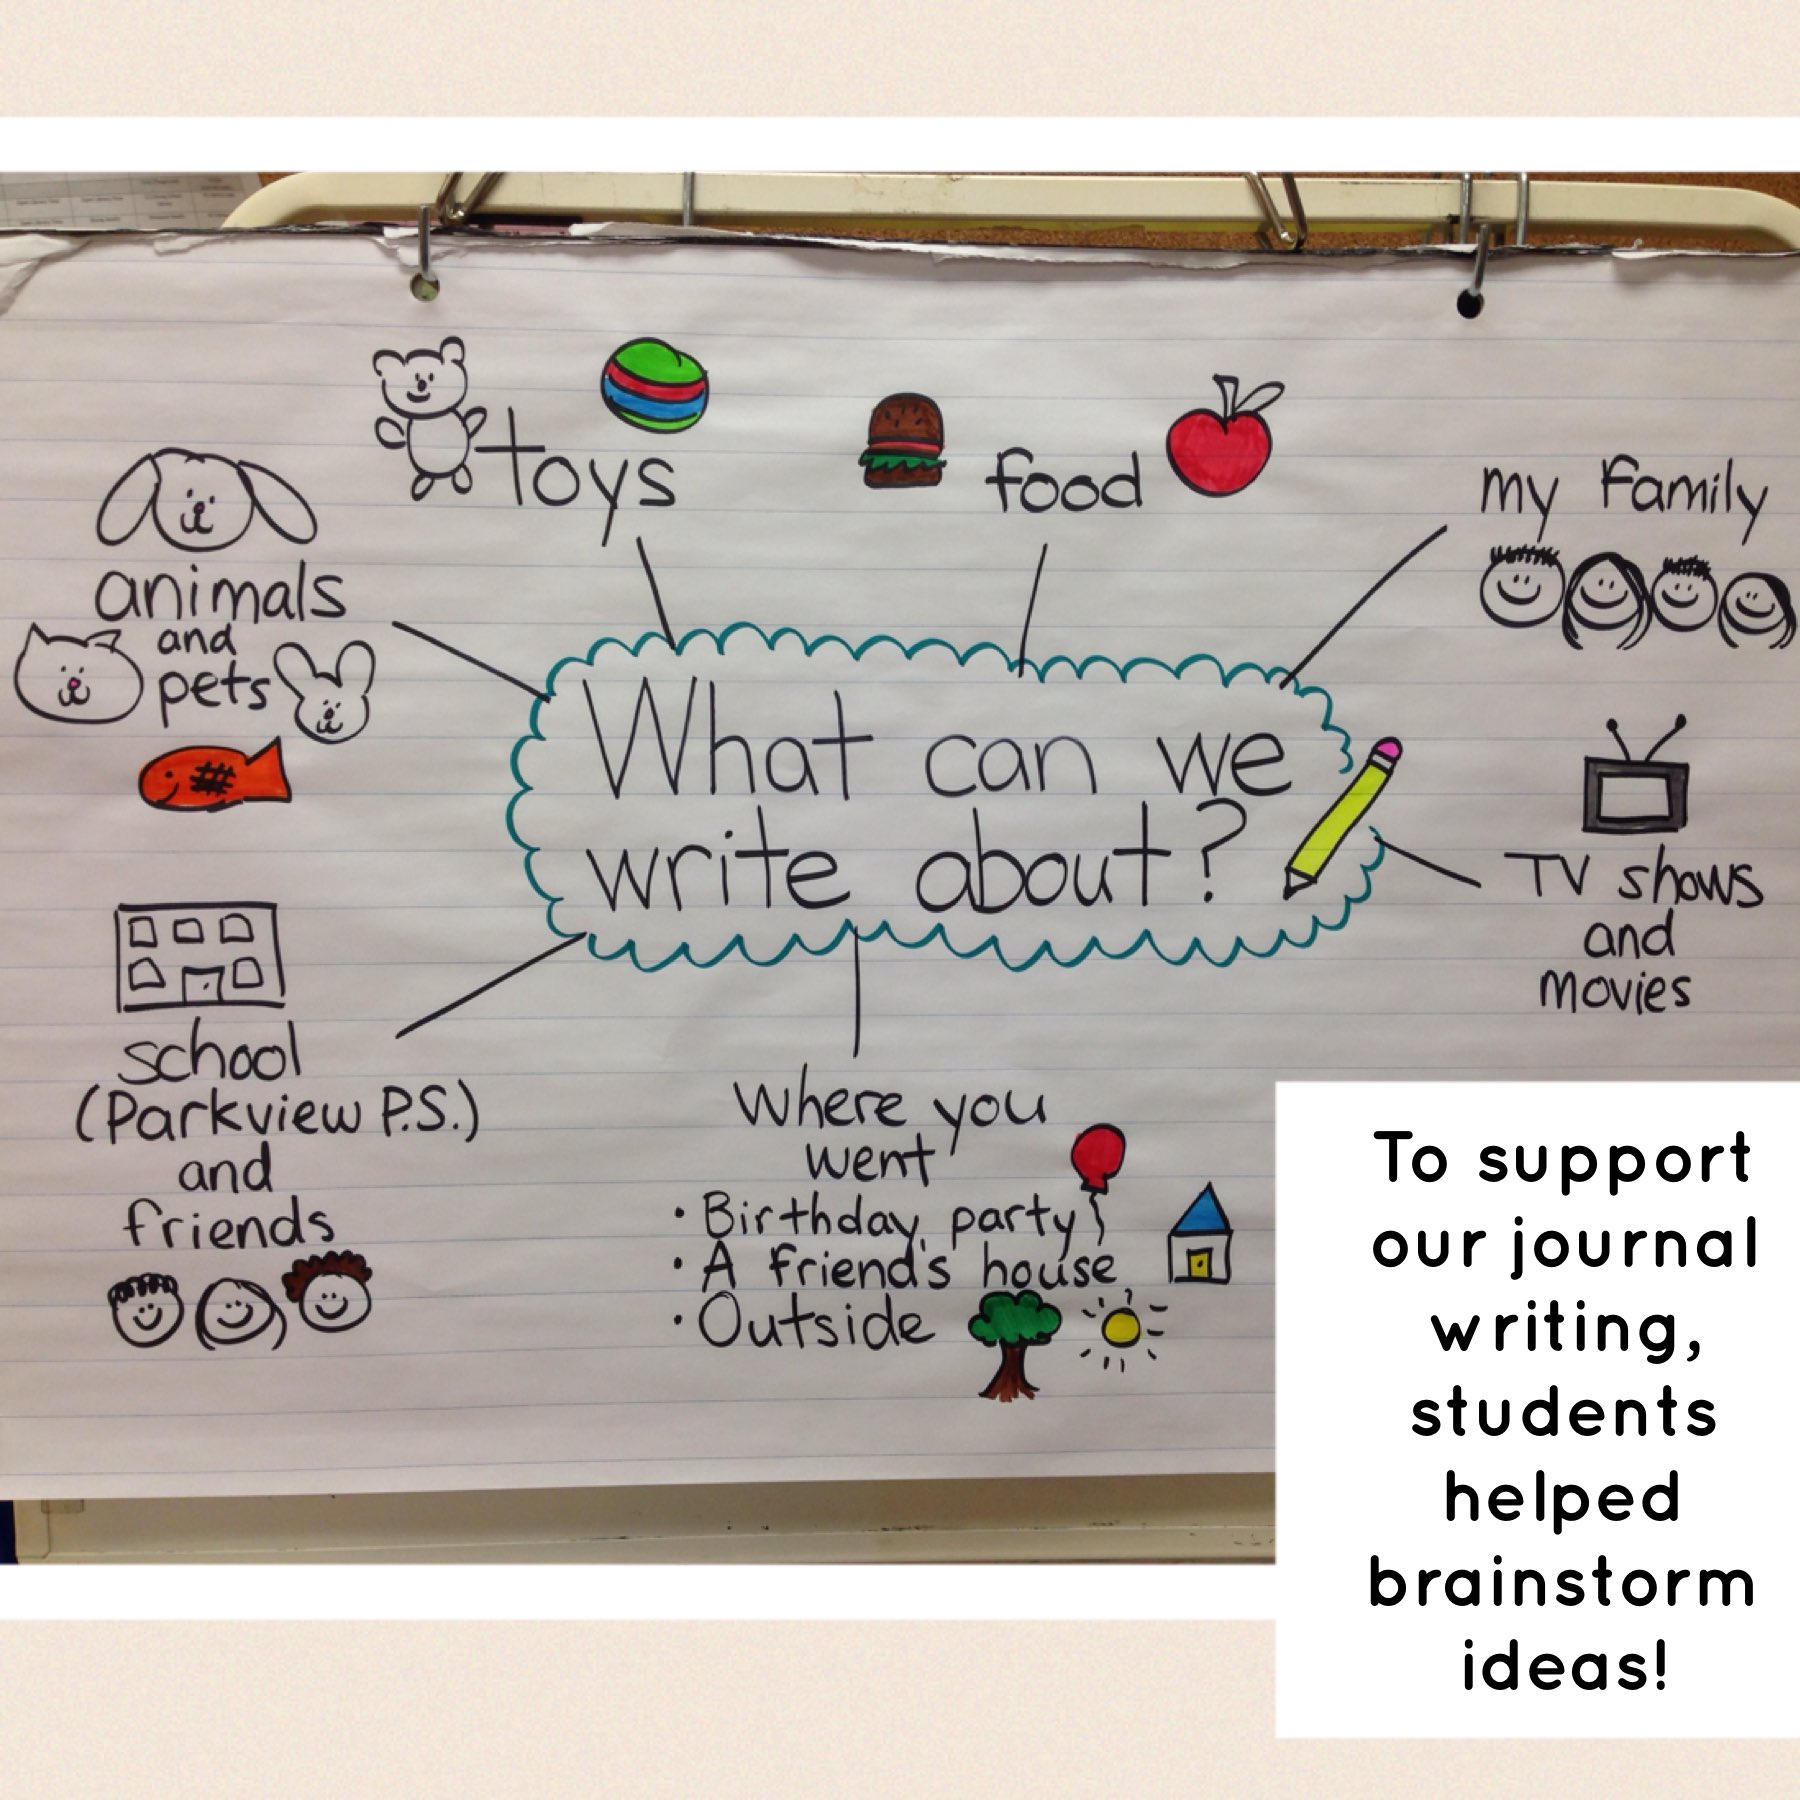 toys
food
my family
animals
and
pets
What can we
write about?
TV shows
and
movies
school
(Parkview P.S.)
and
friends
Where you
went
• Birthday party
• A friend's house
• Outside
To support
our journal
writing,
students
helped
brainstorm
ideas!